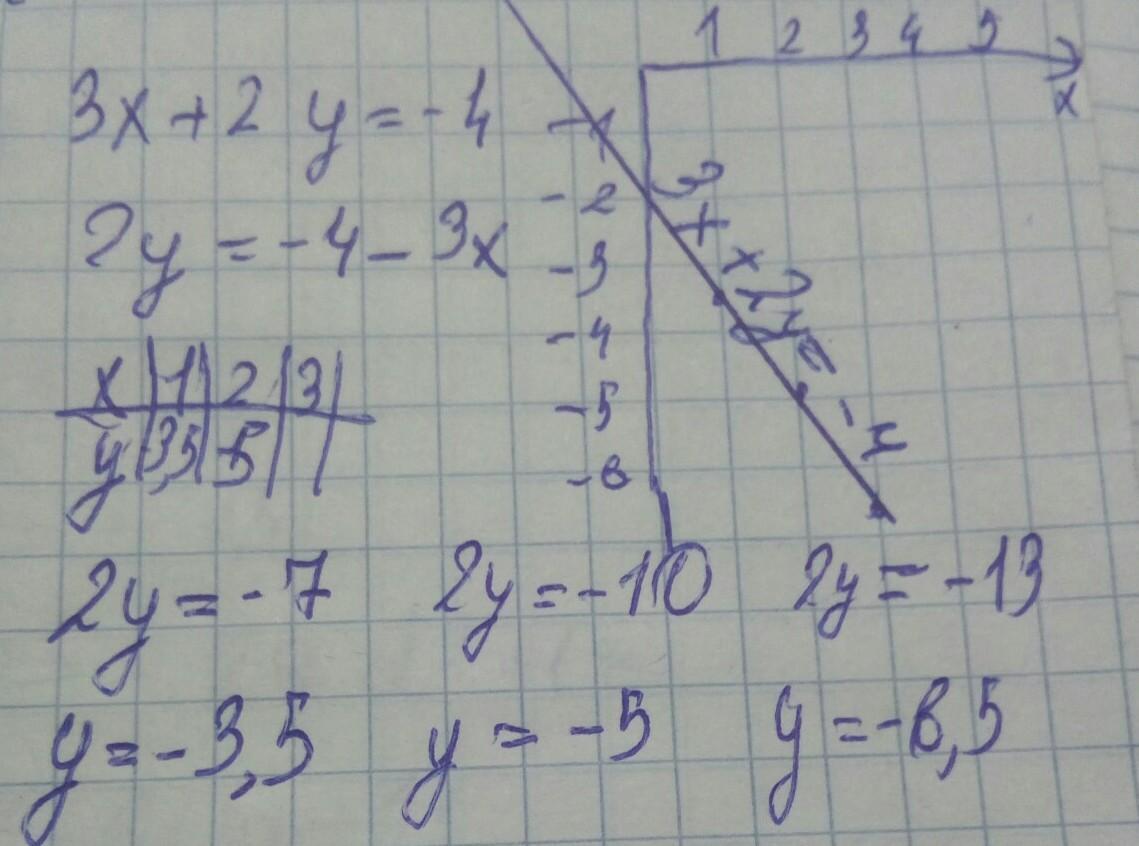 3x + 2 y = -4
2y = -4 - 3x
x | 1 | 2 | 3 |
y | 3,5 | -5 | |
2y = -7
2y = -10
2y = -13
y = -3,5
y = -5
y = -6,5
1 2 3 4 5
x
-1
-2
-3
-4
-5
-6
3x + 2y = -4